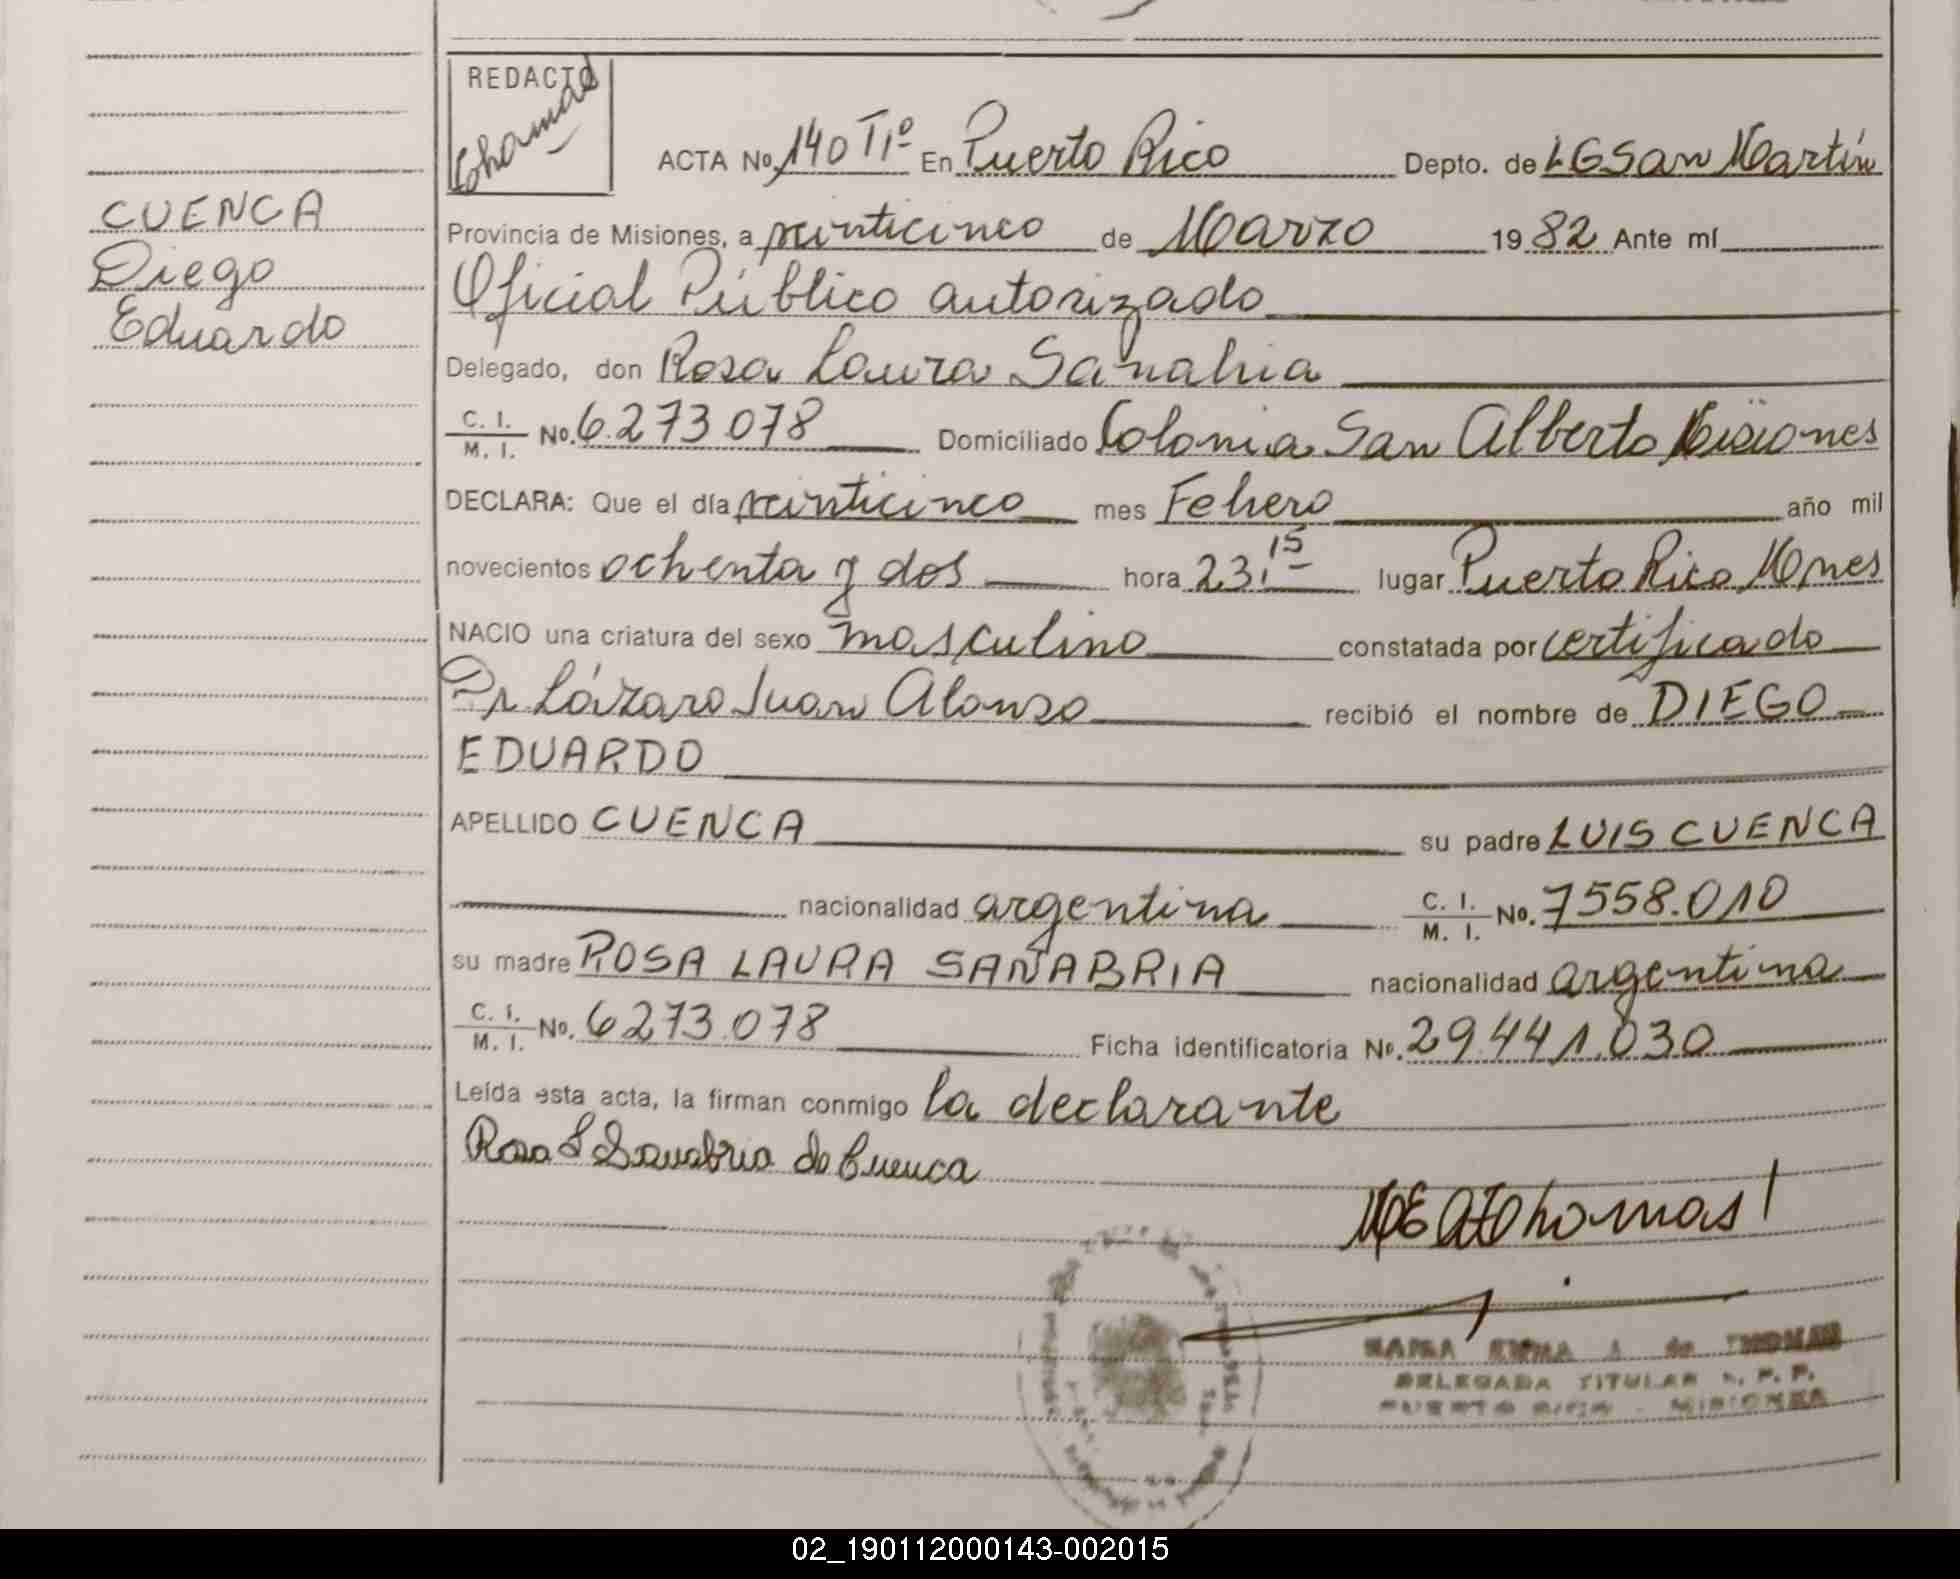 CUENCA
Diego
Eduardo
REDACTO
Thomas
ACTA No. 140 Tı° En Puerto Rico Depto. de LG San Martín
Provincia de Misiones, a veinticinco de Marzo 1982 Ante mí
Oficial Público autorizado
Delegado, don Rosa Laura Sanabria
C. I. / M. I. No. 6.273.078 Domiciliado Colonia San Alberto Misiones
DECLARA: Que el día veinticinco mes Febrero año mil
novecientos ochenta y dos hora 23,15 lugar Puerto Rico Mnes
NACIO una criatura del sexo masculino constatada por certificado
Dr Lázaro Juan Alonso recibió el nombre de DIEGO
EDUARDO
APELLIDO CUENCA su padre LUIS CUENCA
nacionalidad argentina C. I. / M. I. No. 7558.010
su madre ROSA LAURA SANABRIA nacionalidad argentina
C. I. / M. I. No. 6273.078 Ficha identificatoria No. 29.441.030
Leída esta acta, la firman conmigo la declarante
Rosa L Sanabria de Cuenca
de THOMAS
DELEGADA TITULAR R. P. P.
PUERTO RICO - MISIONES
02_190112000143-002015